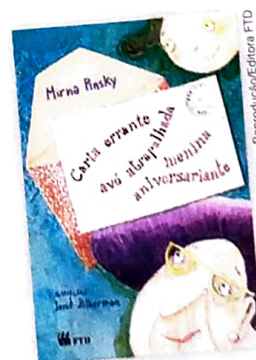 Mirna Pinsky
Carta errante
avó atrapalhada
menina
aniversariante
Janet Zilberman
FTD
Reprodução/Editora FTD